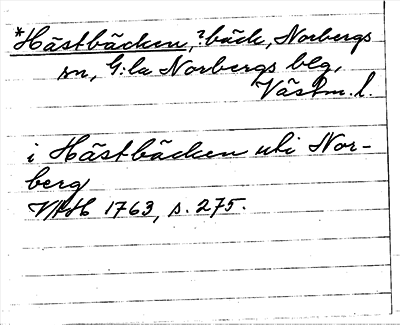 *Hästbäcken, ?bäck, Norbergs
sn, G:la Norbergs blg,
Västm. l.
i Hästbäcken uti Nor-
berg
1763, s. 275.